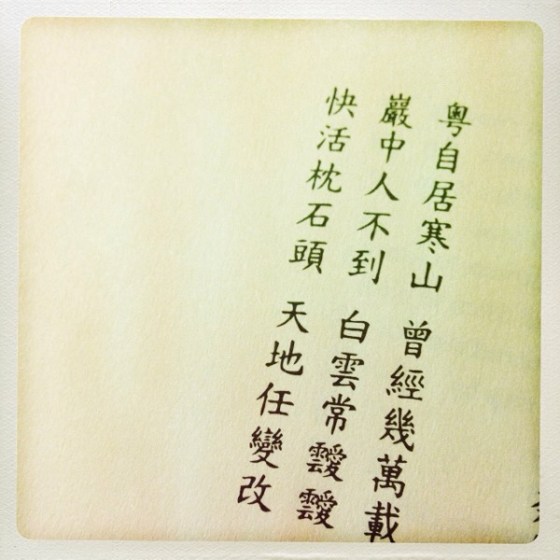 粵自居寒山 曾經幾萬載
巖中人不到 白雲常靉靉
快活枕石頭 天地任變改